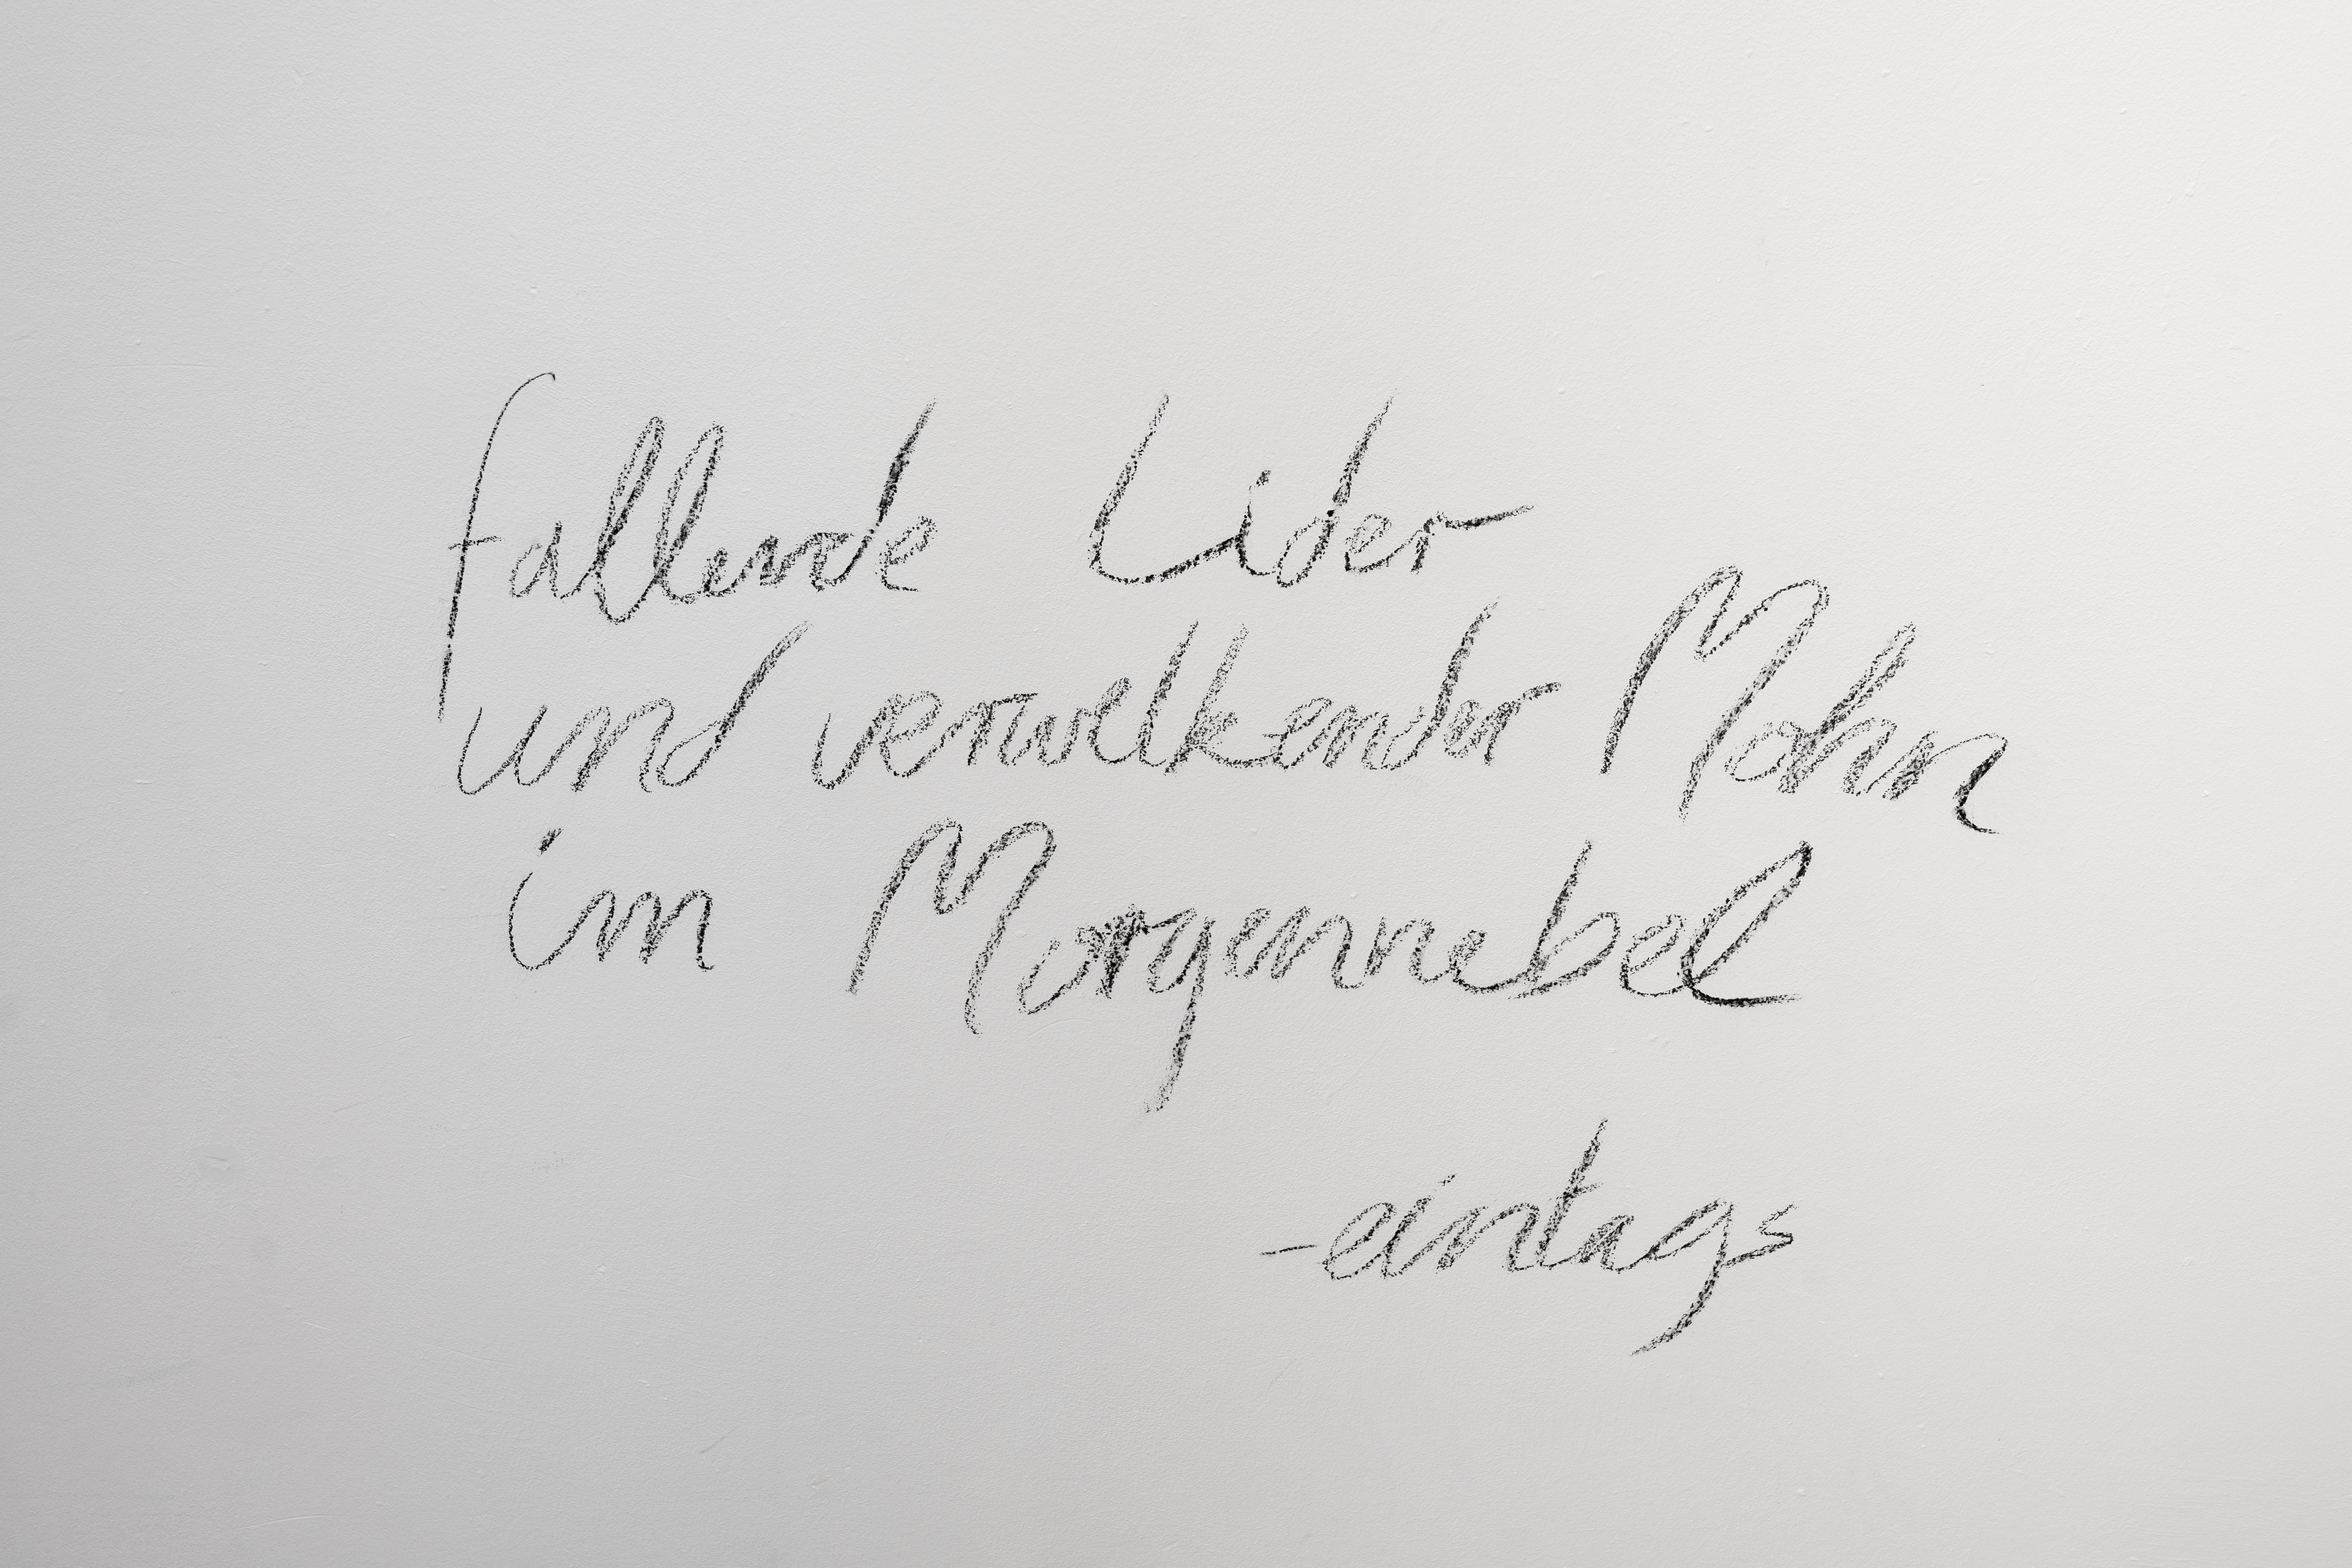 fallende Lider
und verwelkender Mohn
im Morgennebel
-eintags